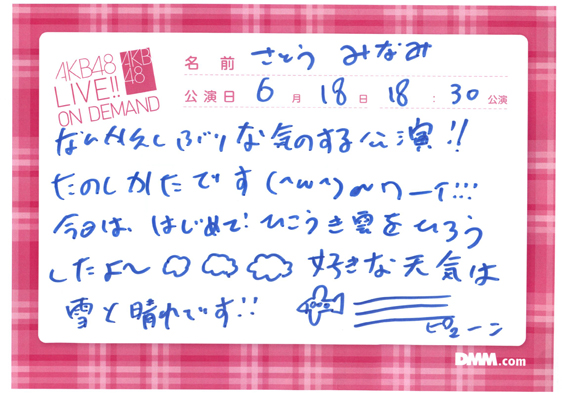 AKB48
LIVE!!
ON DEMAND
AKB
48
名前 さとう みなみ
公演日 6月18日18:30公演
なんか久しぶりな気のする公演!!
たのしかたです(^w^)~ワーイ!!!
今日は、はじめて!ひこうき雲をひろう
したよ〜
好きな天気は
雪と晴れです!!
ピューン
DMM.com